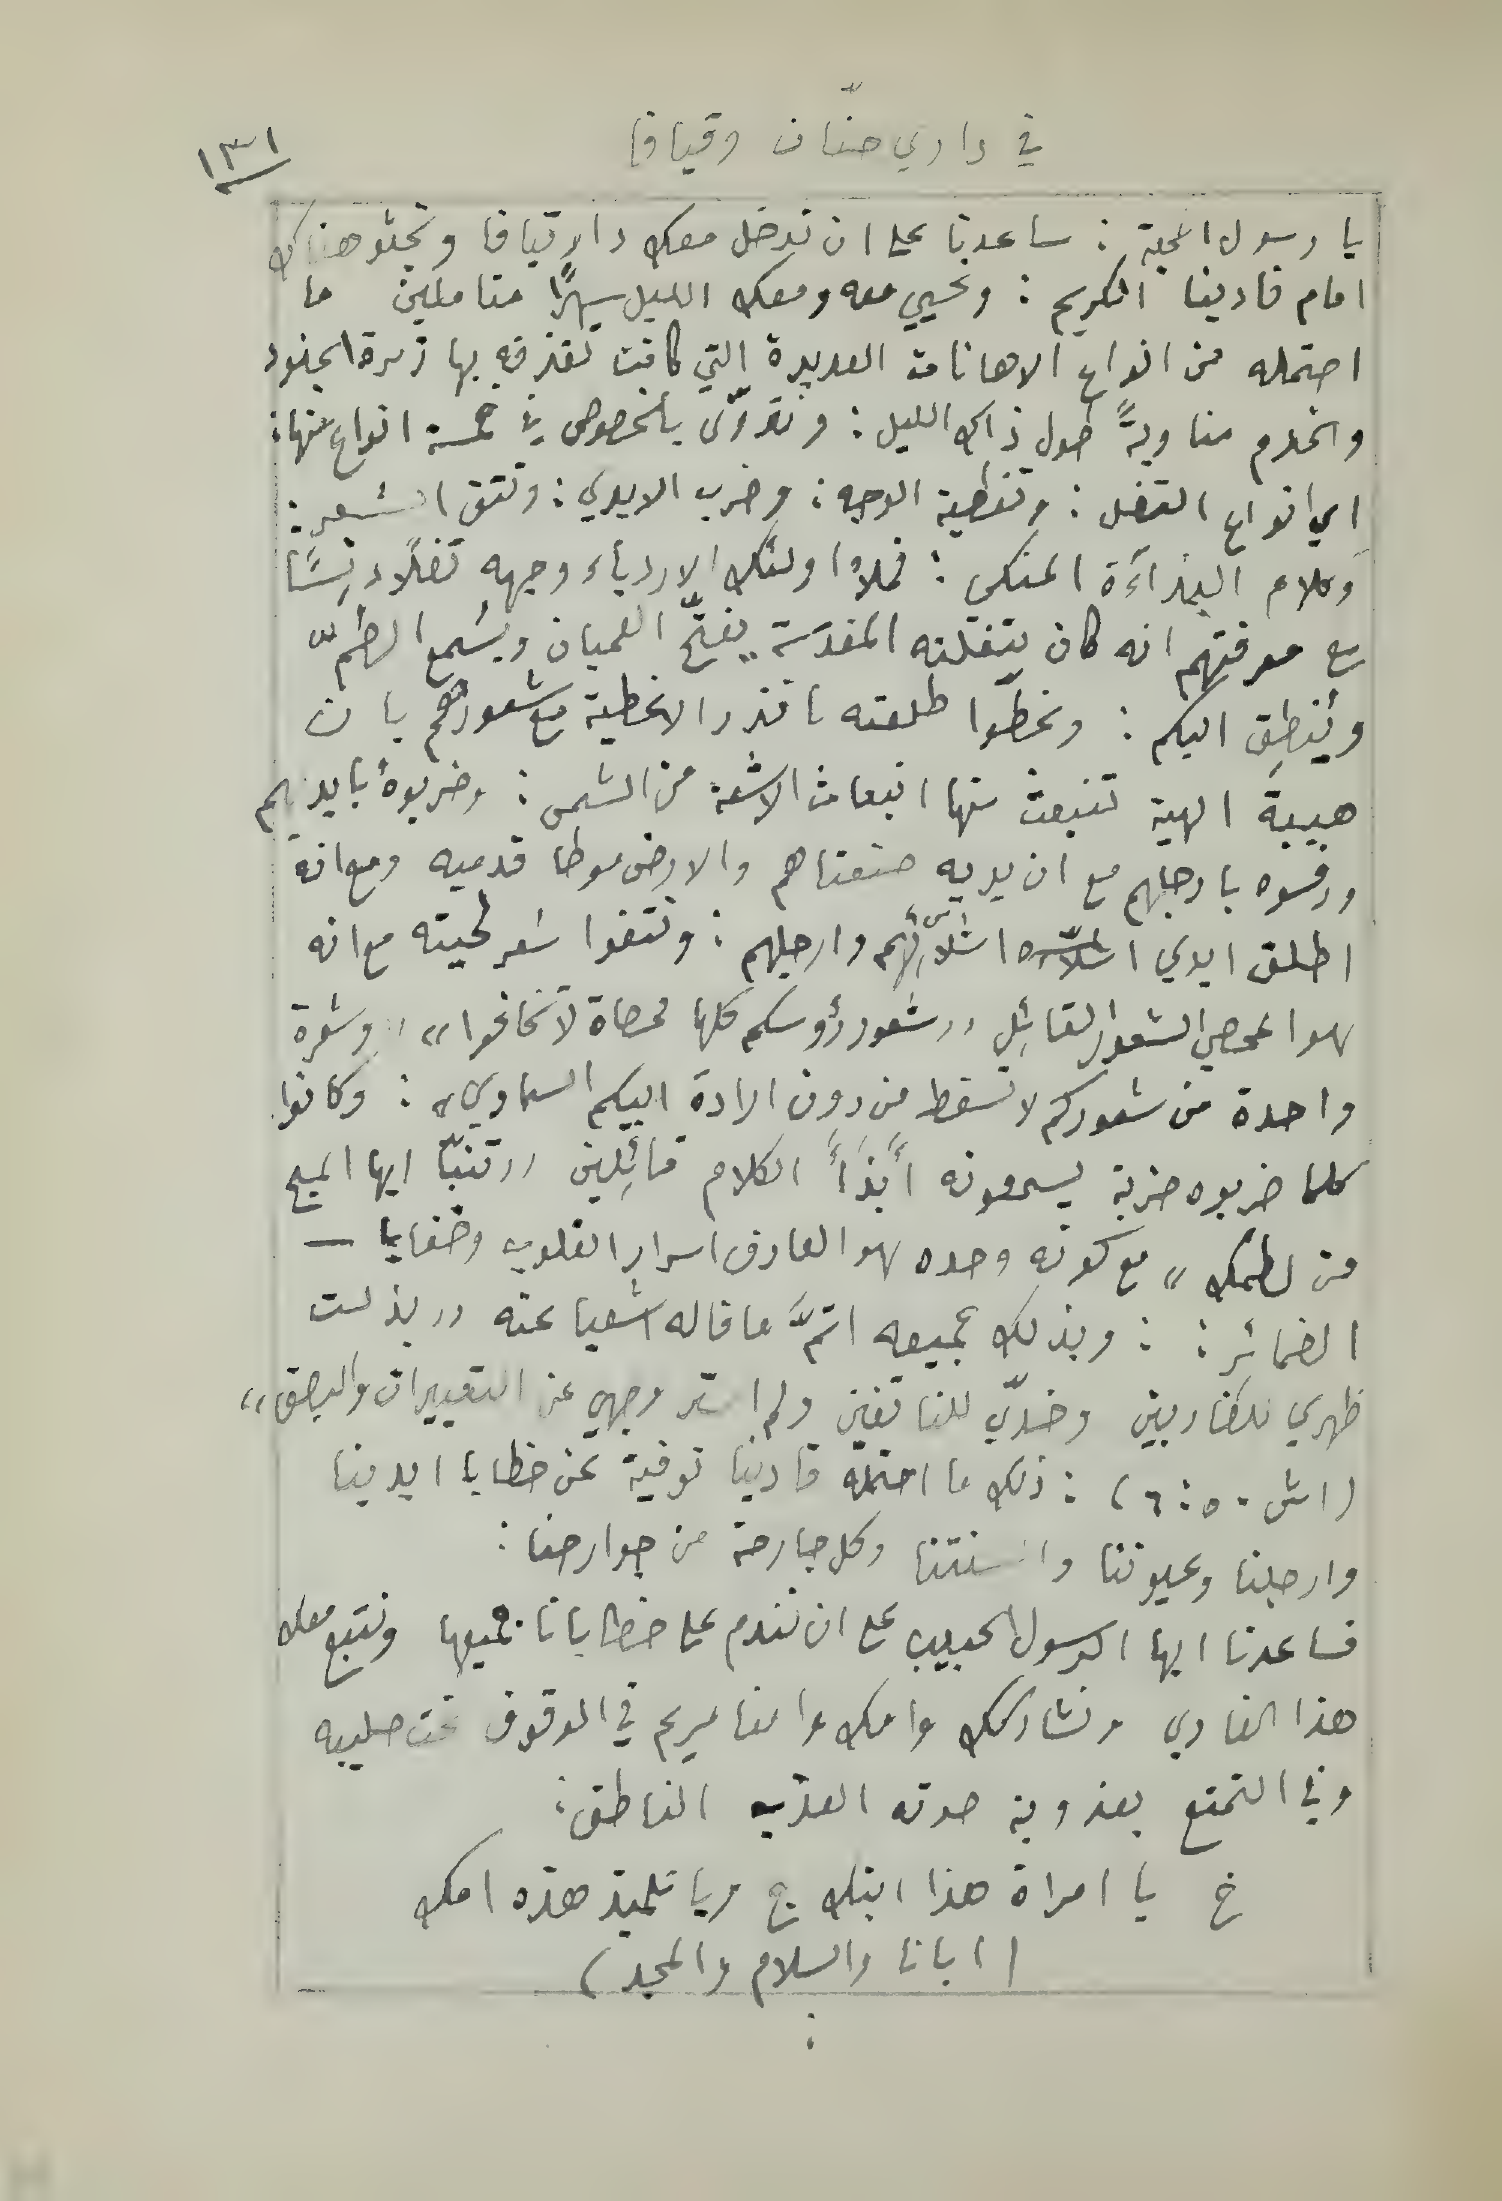 في داري حنّان وقيافا
١٣١
يا رسول المحبة : ساعدنا على ان ندخل معك دار قيافا ونجثو هناك
امام فادينا الكريم : ونحيي معه ومعك الليل سهرًا متاملين ما
احتمله من انواع الاهانات العديدة التي كانت تقذفه بها زمرة الجنود
والخدم مناوبةً طول ذاك الليل : ونتروّى بالخصوص في خمسة انواع منها :
اي انواع التفل : وتغطية الوجه : وضرب الايدي : ونتف الشعر :
وكلام البذاءة المنكي : فملاوا اولئك الاردياء وجهه تفلًا دنسًا
مع معرفتهم انه كان بتفلته المقدسة يفتّح العميان ويسمع الصمّ
ويُنطِق البكم : وغطّوا طلعته باقذر الاغطية مع شعورهم بان
هيبة الهية تنبعث منها انبعاث الاشعة من الشمس : وضربوهُ بايديهم
ورفسوه بارجلهم مع ان يديه صنعتاهم والارض موطا قدميه ومع انه
اطلق ايدي اشلّائهم وارجلهم : ونتفوا شعر لحيته مع انه
هو المحصي الشعور القائِل ,, شعور رؤوسكم كلها محصاة لا تخافوا ،، وشعرة
واحدة من شعوركم لا تسقط من دون ارادة ابيكم السماوي ،، : وكانوا
كلما ضربوه ضربة يسمعونه أَبْذَأَ الكلام قائِلين ,, تنبّا ايها المسيح
من لطمك ،، مع كونه وحده هو العارف اسرار القلوب وخفايا —
الضمائر : : وبذلك جميعه اتمَّ ما قاله اشعيا عنه ,, بذلت
ظهري للضاربين وخديّ للناتفين ولم استر وجهي عن التعييرات والبصق ،،
(اش ٥٠ : ٦) : ذلك ما احتمله فادينا توفية عن خطايا ايدينا
وارجلنا وعيوننا والسنتنا وكل جارحة من جوارحنا :
فساعدنا ايها الرسول الحبيب على ان نندم على خطايانا جميعها ونتبع معك
هذا الفادي ونشاركك وامك وامنا مريم في الوقوف تحت صليبه
وفي التمتع بعذوبة صوته العذب الناطق :
خ يا امراة هذا ابنك ج ويا تلميذ هذه امك
(ابانا والسلام والمجد)